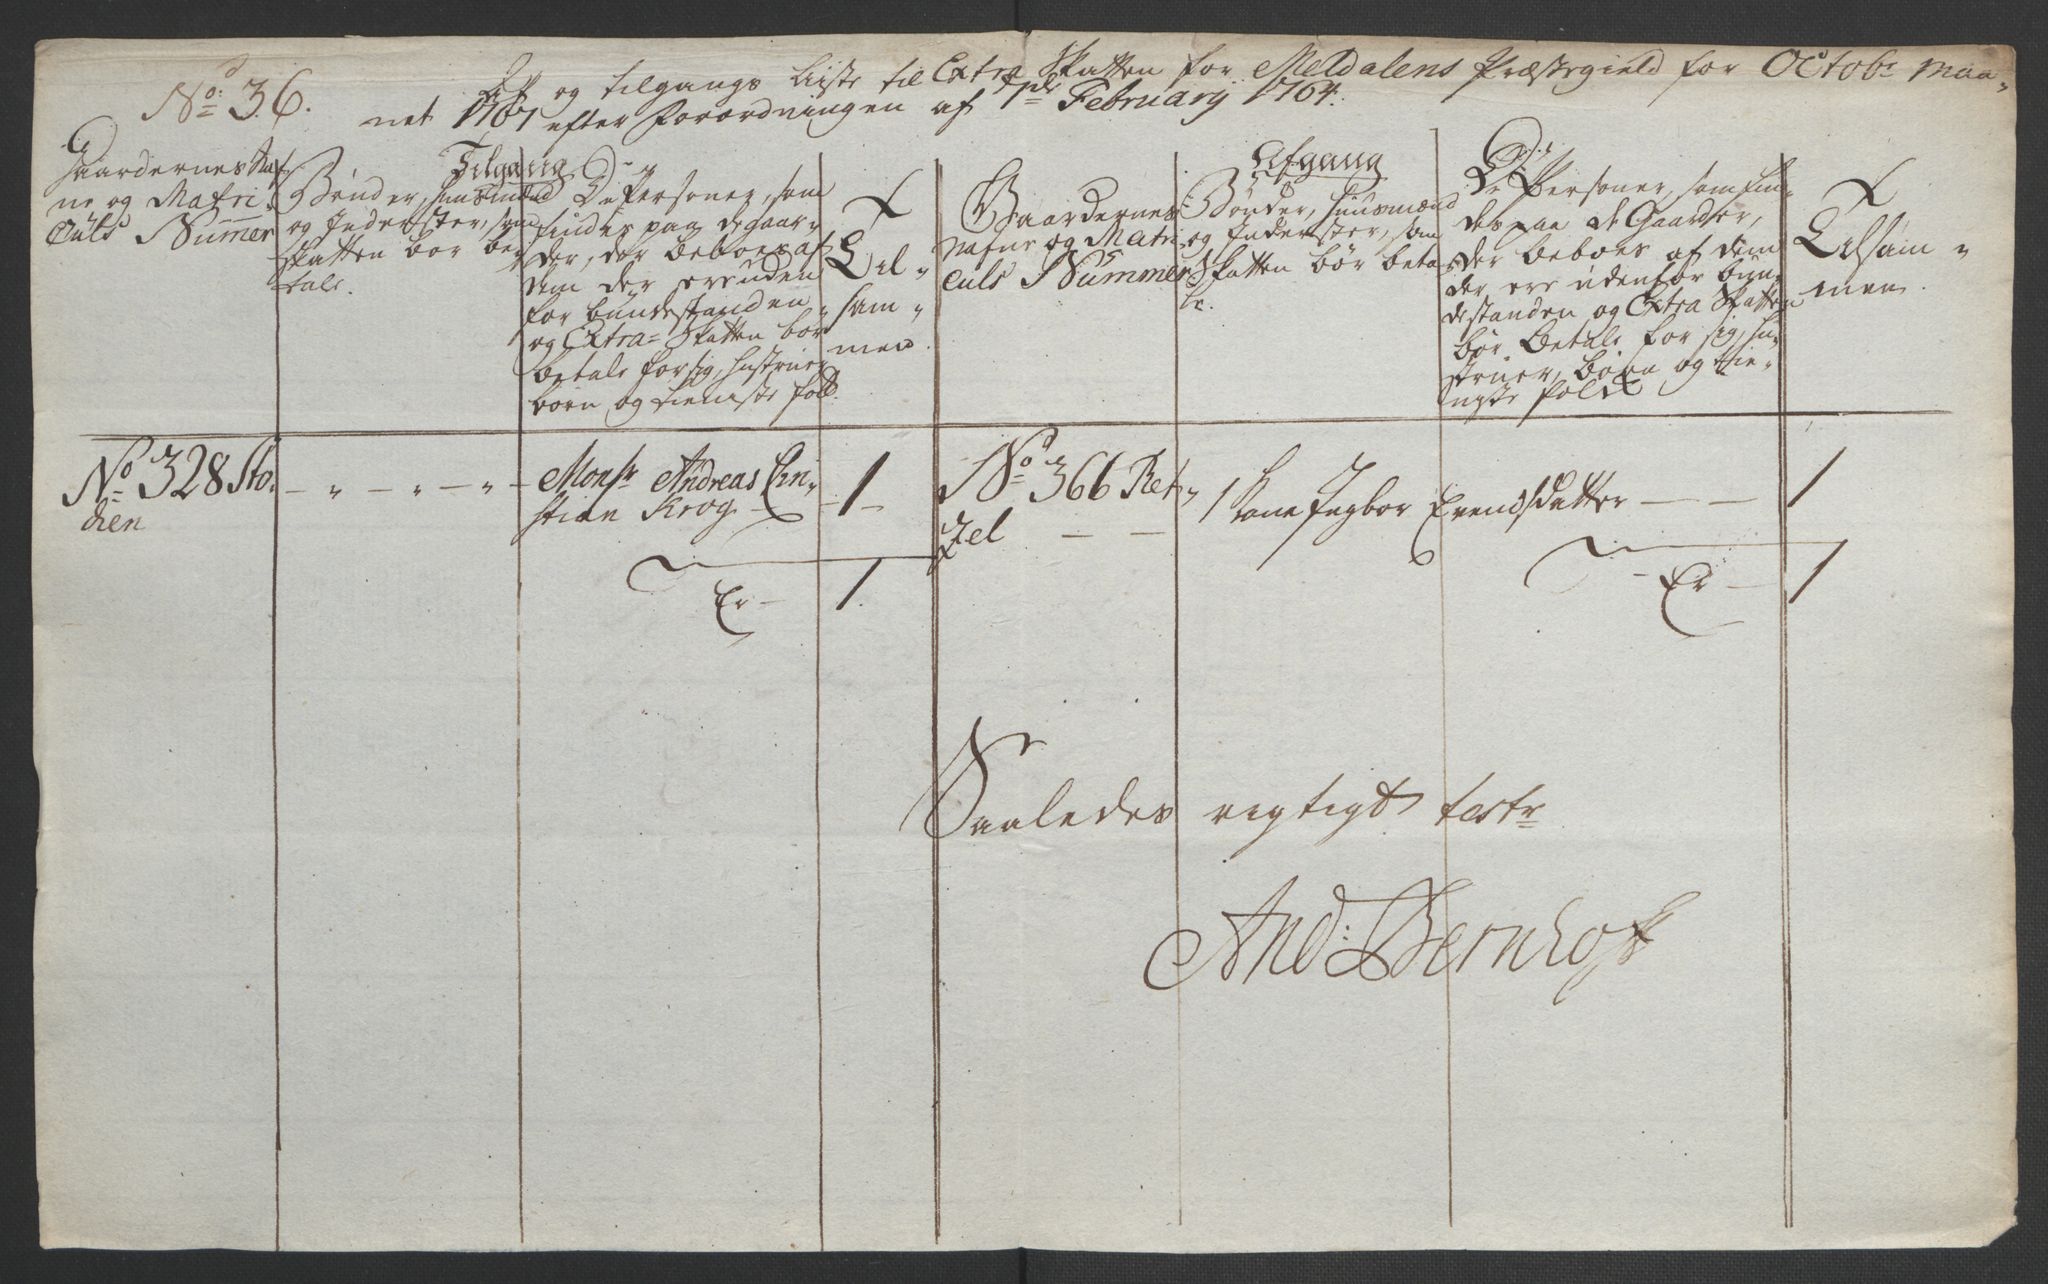 No: 36.
Af og tilgangs Liiste til Extra Skatten for Meldalens Præstegield for Octobr Maa-
net 1767 efter Forordningen af 7de February 1764.
Tilgang
Gaardernes Naf-
ne og Matri-
culs Nummer
Bønder, Huusmænd
og Inderster, som
skatten bør be-
tale.
De Personer, som
findes paa de gaar-
der, der beboes af
dem der ere uden
for bundestanden
og Extra-Skatten bør
betale for sig, hustruer
børn og tieniste folk.
Til-
sam-
men.
Afgang
Gaardernes
Nafne og Matri-
culs Nummer
Bønder, Huusmænd
og Inderster, som
Skatten bør beta-
le.
De Personer, som fin-
des paa de Gaarder,
der beboes af dem
der ere udenfor bun-
destanden og Extra Skatten
bør betale for sig, hu-
struer, børn og tie-
niste folk
Tilsam-
men.
No 328 Sto-
dien
– " – " – " –
Monsr Andreas Chri-
stian Krog –
1
Er – 1.
No 366 Ret-
zel – –
1 Kone Ingbor Evendsdatter – –
1
Er – 1
Saaledes rigtigt testr
And: Bernhoft